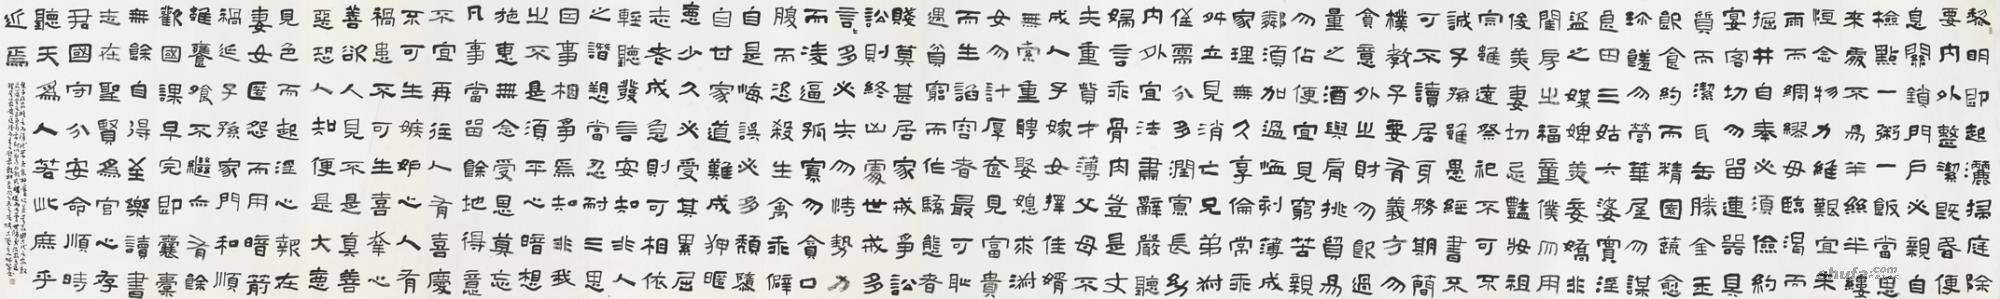 黎明即起灑掃庭除
要內外整潔既昏便
息關鎖門戶必親自
檢點一粥一飯當思
來處不易半絲半縷
恆念物力維艱宜未
雨而綢繆毋臨渴而
掘井自奉必須儉約
宴客切勿留連器具
質而潔瓦缶勝金玉
飲食約而精園蔬愈
珍饈勿營華屋勿謀
良田三姑六婆實淫
盜之媒婢美妾嬌非
閨房之福童僕勿用
俊美妻切忌豔妝祖
宗雖遠祭祀不可不
誠子孫雖愚經書不
可不讀居身務期簡
樸教子要有義方勿
貪意外之財勿飲過
量之酒與肩挑貿易
勿佔便宜見窮苦親
鄰須加溫恤刻薄成
家理無久享倫常乖
舛立見消亡兄弟叔
侄需分多潤寡長幼
內外宜法肅辭嚴聽
婦言乖骨肉豈是丈
夫重貲財薄父母不
成人子嫁女擇佳婿
無索重聘娶媳求淑
女勿計厚奩見富貴
而生諂容者最可恥
遇貧窮而作驕態者
賤莫甚居家戒爭訟
訟則終凶處世戒多
言〻多必失勿恃勢力
而凌逼孤寡勿貪口
腹而恣殺生禽乖僻
自是悔誤必多頹隳
自甘家道難成狎暱
惡少久必受其累屈
志老成急則可相依
輕聽發言安知非人
之譖愬當忍耐三思
因事相爭焉知非我
之不是須平心暗想
施惠無念受恩莫忘
凡事當留餘地得意
不宜再往人有喜慶
不可生嫉妒心人有
禍患不可生喜幸心
善欲人見不是真善
惡恐人知便是大惡
見色而起淫心報在
妻女匿怨而用暗箭
禍延子孫家門和順
雖饔飧不繼亦有餘
歡國課早完即囊橐
無餘自得至樂讀書
志在聖賢為官心存
君國守分安命順時
聽天為人若此庶乎
近焉
shufa.com